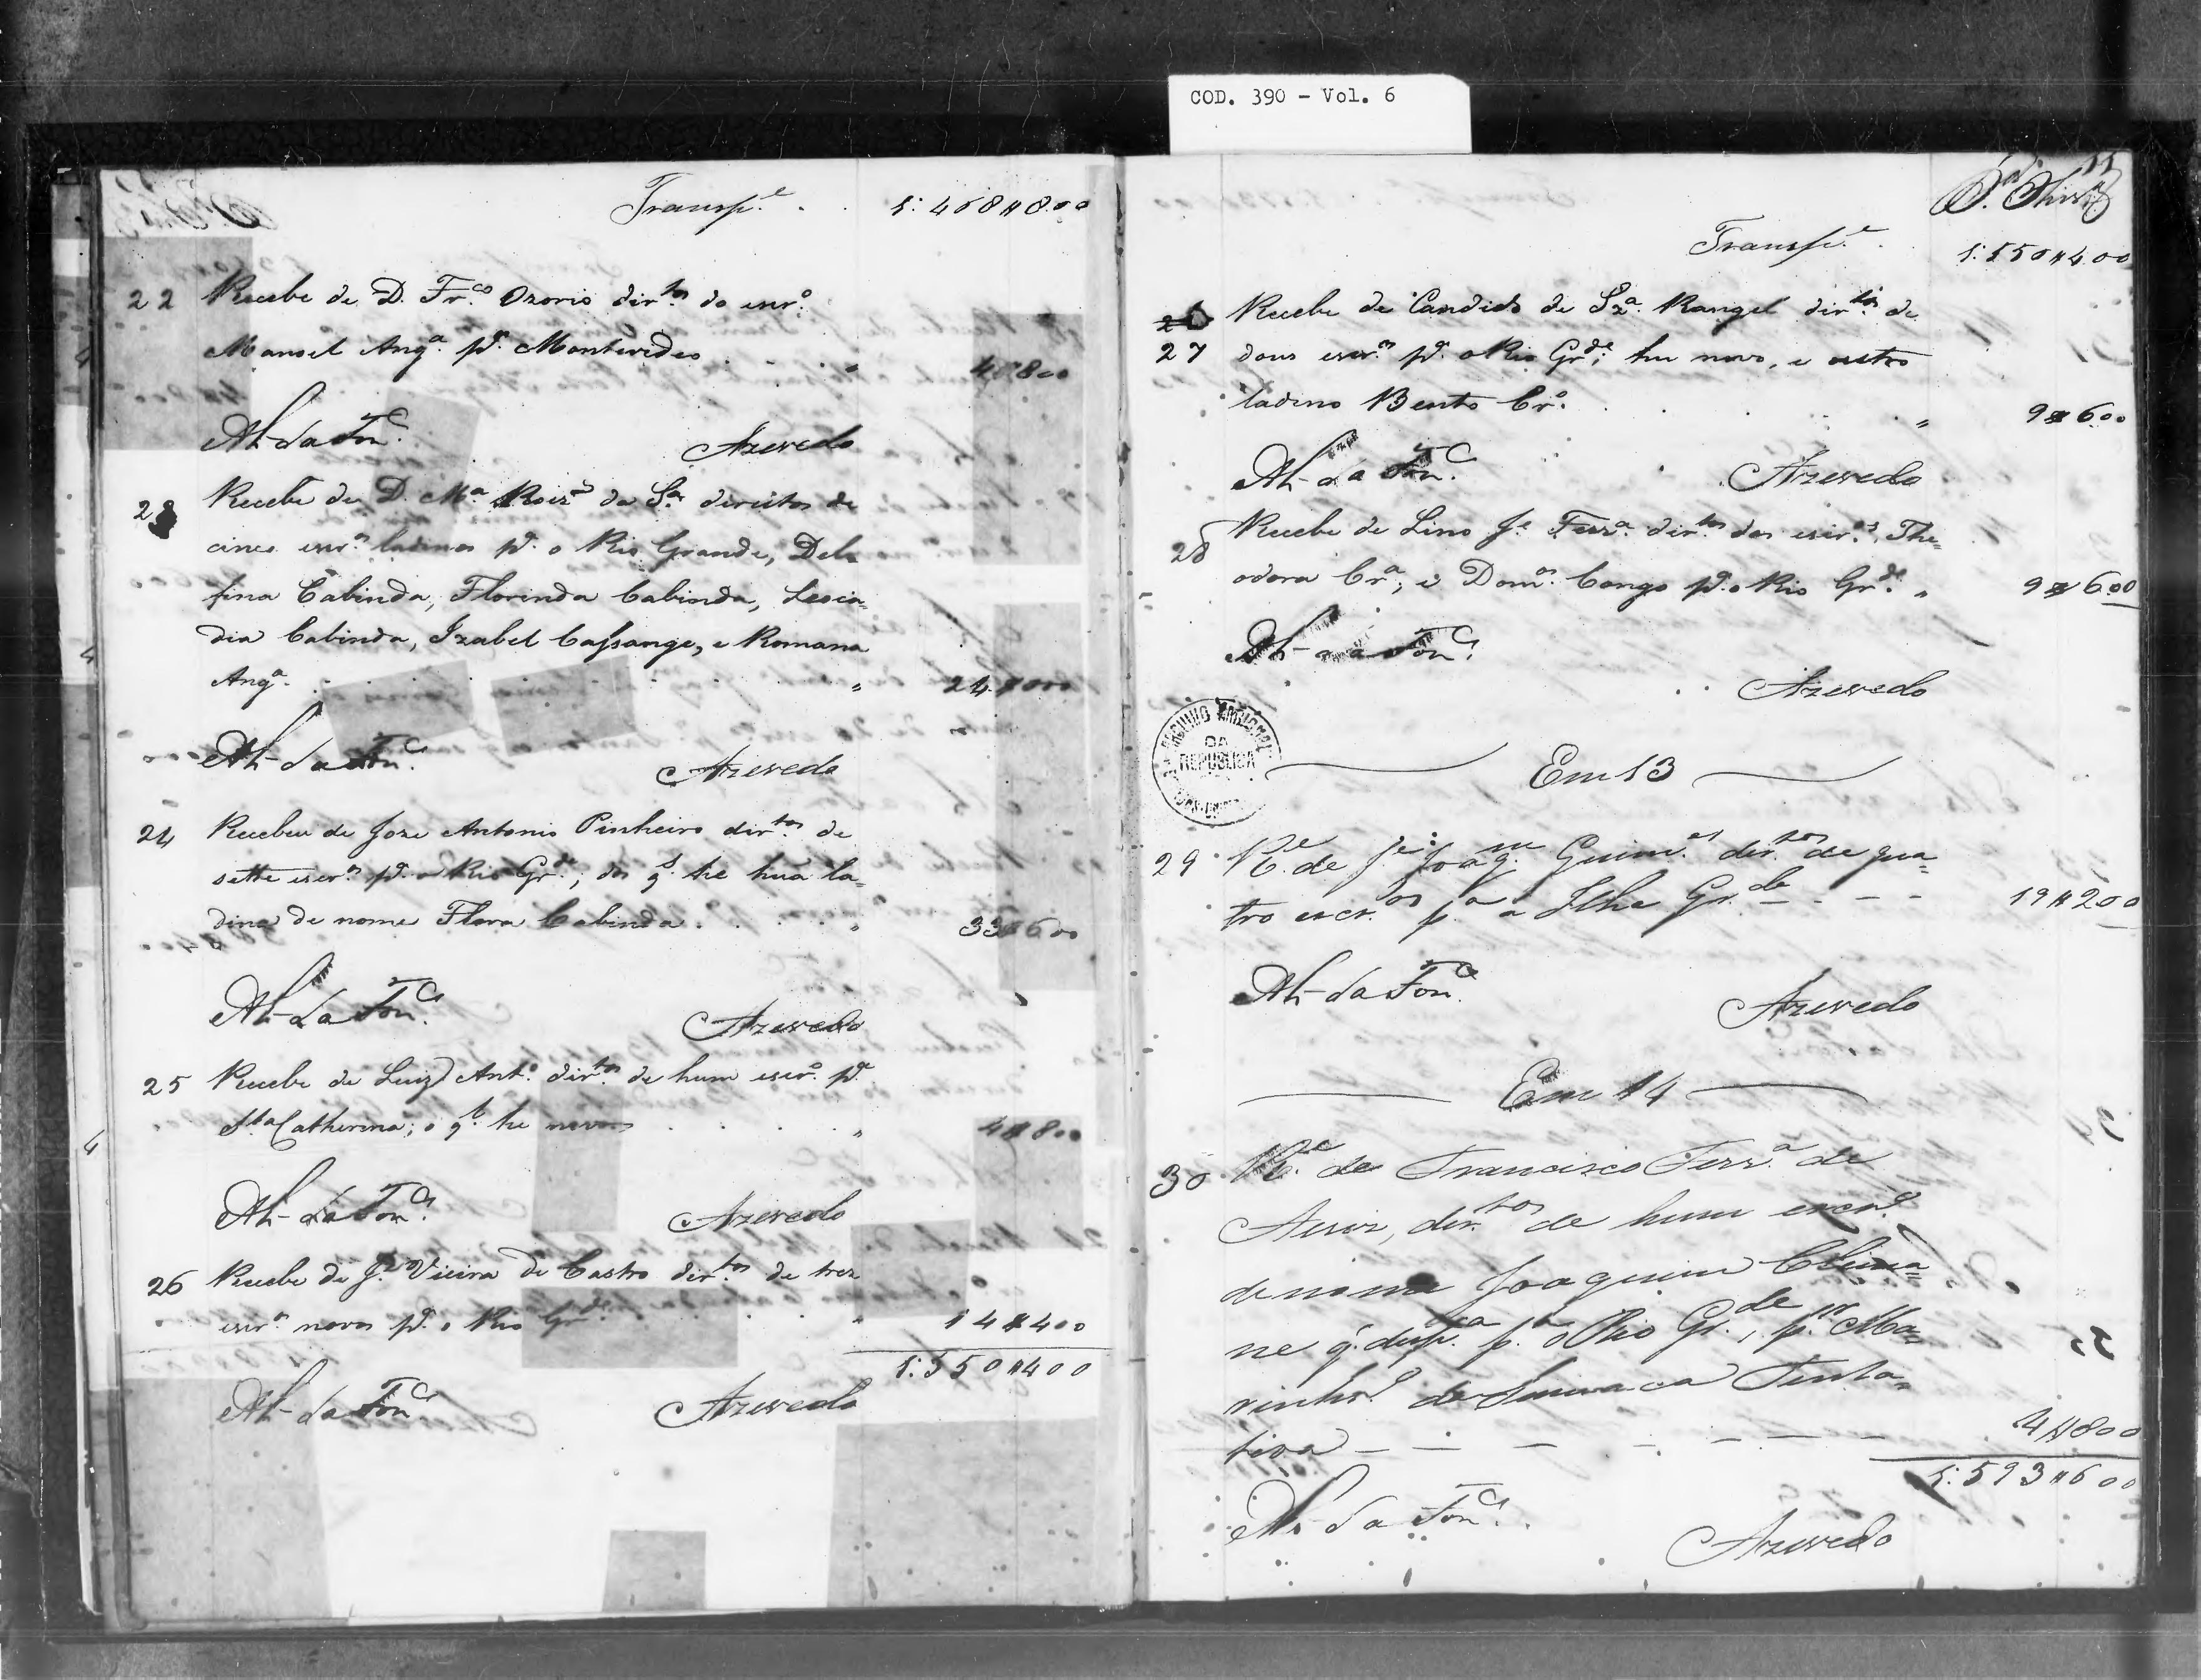 COD. 390 - Vol. 6
Transp.e . . 1:468#800
22 Recebe de D. Fr.co Ozorio dir.tos do escr.o
Manoel Ang.a p.a Montevideo . . " 4#800
Ah-da Fon.ca
Azevedo
23 Recebe de D. M.a Roiz da S.a direitos de
cinco escr.os ladinos p.a o Rio Grande, Del-
fina Cabinda, Florinda Cabinda, Leoca=
dia Cabinda, Izabel Cassange, e Romana
Ang.a . . . " 24#000
Ah-da Fon.ca
Azevedo
24 Recebeu de Joze Antonio Pinheiro dir.tos de
sette escr.os p.a o Rio Gr.de; dos q.s he huã la=
dina de nome Flora Cabinda . . . " 33#600
Ah-da Fon.ca
Azevedo
25 Recebe de Luiz Ant.o dir.tos de hum escr.o p.a
S.ta Catherina; o q.l he novo . . . " 4#800
Ah-da Fon.ca
Azevedo
26 Recebe de J. Vieira de Castro dir.tos de trez
escr.os novos p.a o Rio Gr.de . . . " 14#400
1:550#400
Ah-da Fon.ca
Azevedo
Transp.e . 1:550#400
27 Recebe de Candido de Sz.a Rangel dir.tos de
dous escr.os p.a o Rio Gr.de; hu novo, e outro
ladino Bento Cr.o . . . " 9#600
Ah-da Fon.ca
Azevedo
28 Recebe de Lino J.e Ferr.a dir.tos dos escr.os The=
odora Cr.a, e Dom.os Congo p.a o Rio Gr.de " 9#600
Ah-da Fon.ca
Azevedo
ARCHIVO NACIONAL
DA
REPUBLICA
Em 13
29 R.e de J.e Joaq.m Guim.es dir.tos de qua=
tro escr.os p.a a Ilha Gr.de - - - 19#200
Ah-da Fon.ca
Azevedo
Em 14
30 R.e de Francisco Ferr.a de
Assiz, dir.tos de hum escr.o
de nome Joaquim
ne q. desp.a p.a o Rio Gr.de, p.r Ma=
rinhr.o da Sumaca Tenta=
tiva - - - - 4#800
1:593#600
Ah-da Fon.ca
Azevedo